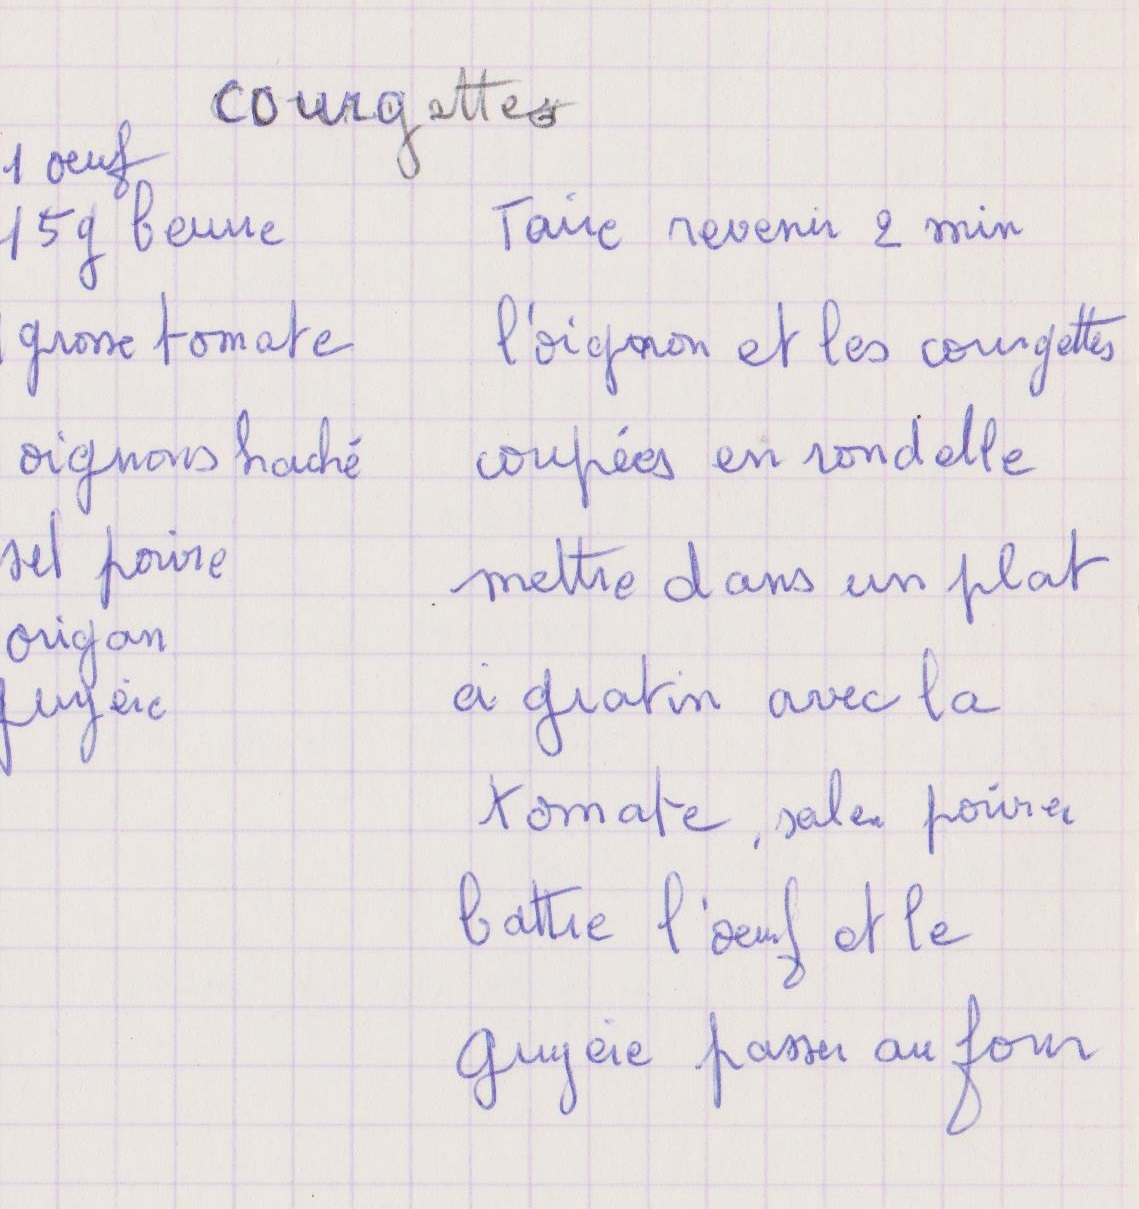 courgettes
1 oeuf
15g beurre
1 grosse tomate
oignons haché
sel poivre
origan
gruyère
Faire revenir 2 min
l'oignon et les courgettes
coupées en rondelle
mettre dans un plat
à gratin avec la
tomate, saler poivrer
battre l'oeuf et le
gruyère passer au four